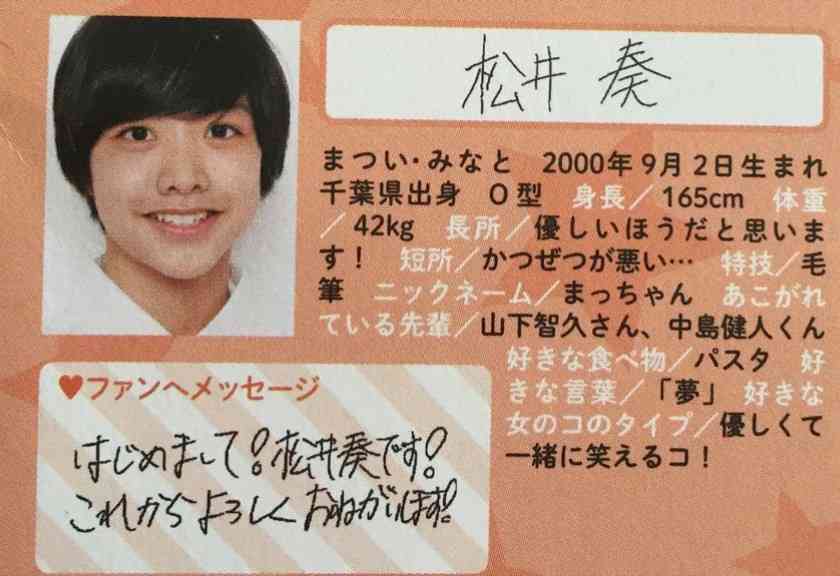 松井 奏
まつい・みなと 2000年9月2日生まれ
千葉県出身 O型 身長／165cm 体重
／42kg 長所／優しいほうだと思いま
す！ 短所／かつぜつが悪い… 特技／毛
筆 ニックネーム／まっちゃん あこがれ
ている先輩／山下智久さん、中島健人くん
好きな食べ物／パスタ 好
きな言葉／「夢」 好きな
女のコのタイプ／優しくて
一緒に笑えるコ！
♥ファンへメッセージ
はじめまして！松井奏です！
これからよろしくおねがいします！